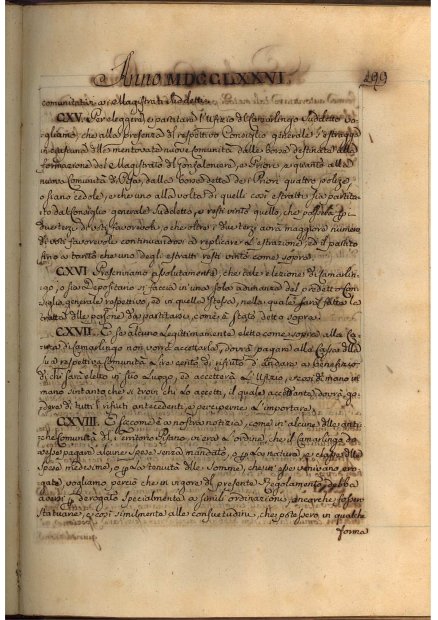 Anno MDCCLXXVI. 499
comunitativi e Magistrati suddetti.
CXV Per eleggere, e partitare l'Ufizio di Camarlingo suddetto vo-
gliamo, che alla presenza di respettivo Consiglio generale s'estragga
in ciascuna delle mentovate nuove Comunità dalle borse destinate alla
formazione del Magistrato di Gonfaloniere, e Priori, e quanto alla
nuova Comunità di Pisa, dalla borsa detta dei Priori quattro polize,
o siano cedole, e che uno alla volta di quelli così estratti sia partita-
to dal Consiglio generale suddetto, e resti vinto quello, che passerà i
due terzi di voti favorevoli, o che oltre i due terzi avrà maggiore numero
di voti favorevoli continuandosi a replicare l'estrazione, ed il partito
fino a tanto che uno degli estratti resti vinto come sopra.
CXVI Proseniamo assolutamente, che tale elezione di Camarlin-
go, o sia Depositario si faccia in una sola adunanza del predetto Con-
siglio generale respettivo, ed in quella stessa, nella quale sarà fatta la
tratta delle persone da partitarsi, come è stato detto sopra.
CXVII E se alcuno legittimamente eletto come sopra alla Ca-
rica di Camarlingo non vorrà accettarla, dovrà pagare alla Cassa della
sua respettiva Comunità Lire cento di rifiuto, e andare a benefizio
di chi sarà eletto in suo luogo, ed accetterà l'Ufizio, e così di mano in
mano sintanto che si trovi chi lo accetti, il quale accettante dovrà go-
dere di tutti i rifiuti antecedenti, e percipere l'importare.
CXVIII E siccome è a nostra notizia, come in alcune delle anti-
che Comunità del Territorio Pisano, vi era l'ordine, che il Camarlingo do-
vesse pagare alcune spese senza mandato, o per la natura, e classe delle
spese medesime, o per la tenuità delle somme, che in esse venivano ero-
gate, vogliamo, perciò che in vigore del presente Regolamento debba
aversi per derogato specialmente a simili ordinazioni, ancorchè fossero
Statuarie, e così similmente alle consuetudini, che potessero in qualche
forma